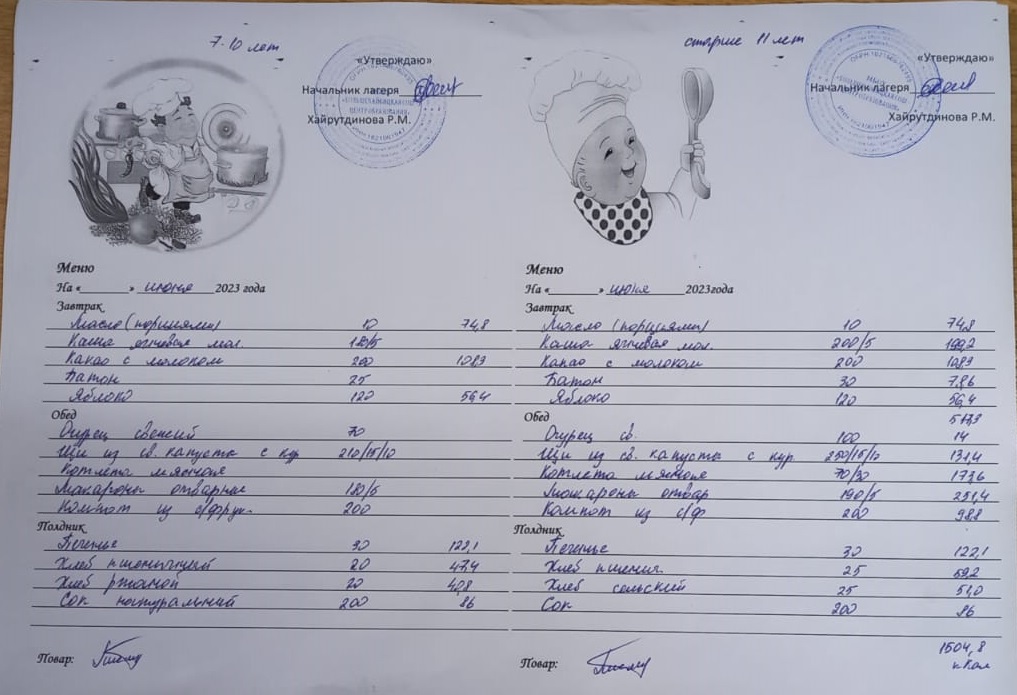 7-10 лет
«Утверждаю»
Начальник лагеря
Хайрутдинова Р.М.
Меню
На « » июня 2023 года
Завтрак
Масло (порциями) 10 74,8
Каша ячневая мол. 180/5
Какао с молоком 200 108,3
Батон 25
Яблоко 120 56,4
Обед
Огурец свежий 70
Щи из св. капусты с кур 210/15/10
Котлета мясная
Макароны отварные 180/5
Компот из с/фрук. 200
Полдник
Печенье 30 122,1
Хлеб пшеничный 20 47,4
Хлеб ржаной 20 40,8
Сок натуральный 200 86
Повар:
старше 11 лет
«Утверждаю»
Начальник лагеря
Хайрутдинова Р.М.
Меню
На « » июня 2023года
Завтрак
Масло (порциями) 10 74,8
Каша ячневая мол. 200/5
Какао с молоком 200 108,3
Батон 30 78,6
Яблоко 120 56,4
Обед
Огурец св. 100 14
Щи из св. капусты с кур. 250/15/10 131,4
Котлета мясная 70/30 173,6
Макароны отвар 190/5 251,4
Компот из с/ф 200 98,8
Полдник
Печенье 30 122,1
Хлеб пшенич. 25 59,2
Хлеб сельский 25 51,0
Сок 200 86
1504,8
ккал
Повар: